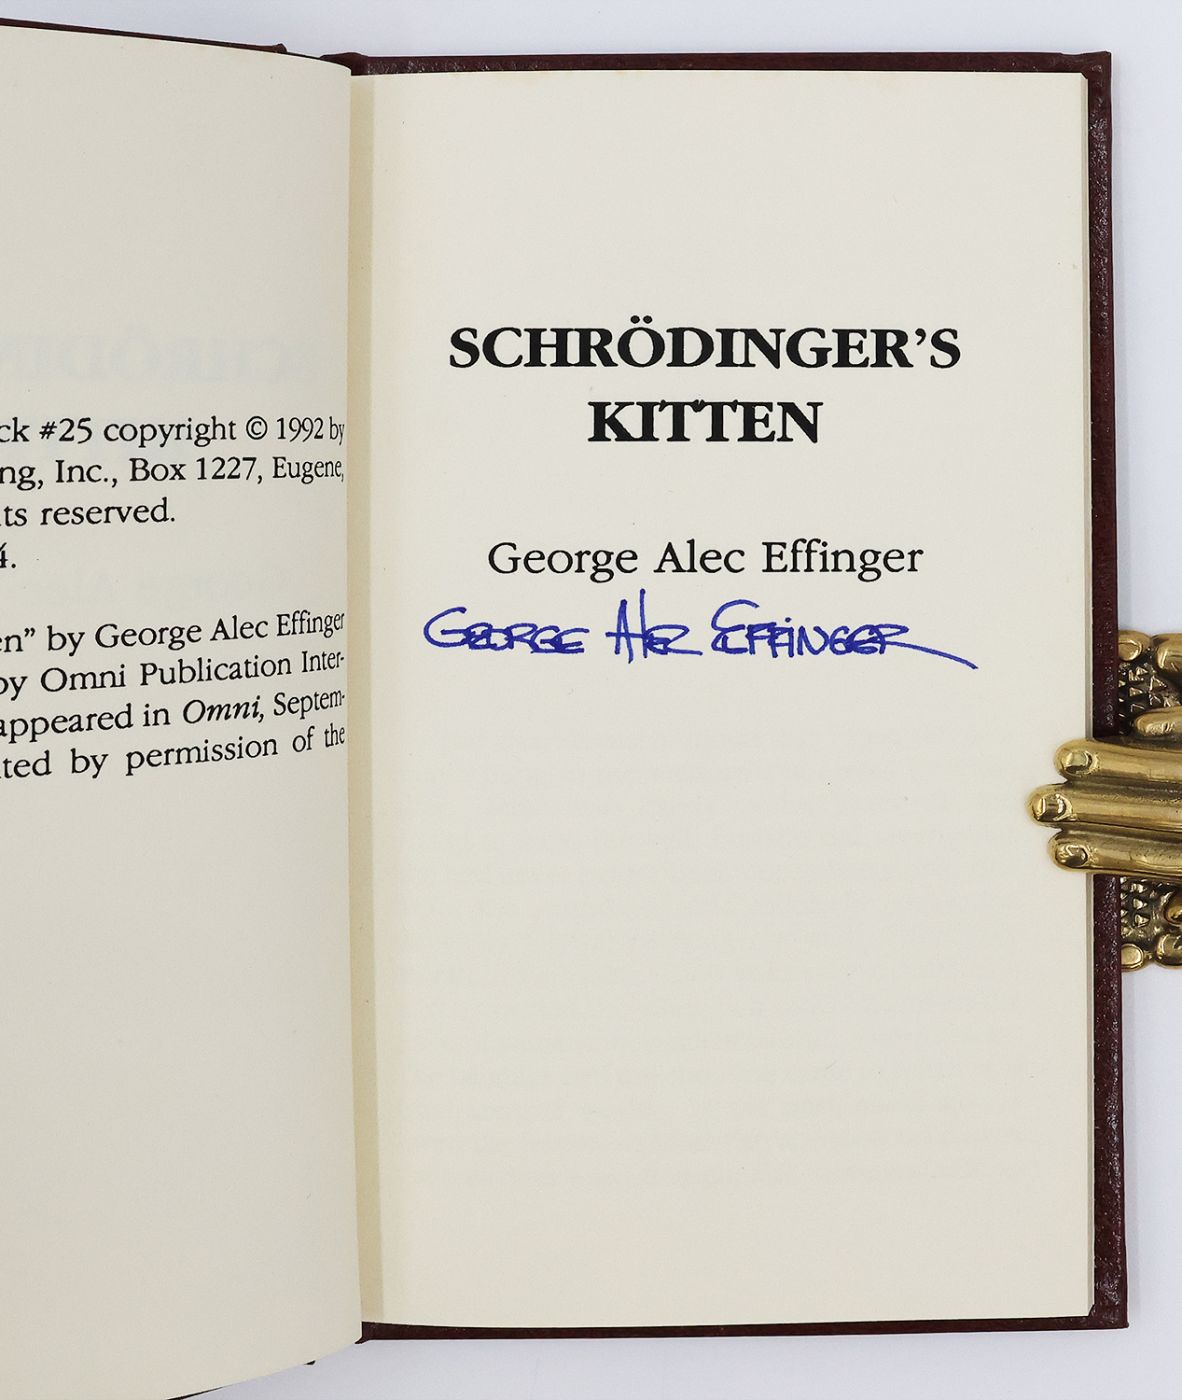 ck #25 copyright © 1992 by
ng, Inc., Box 1227, Eugene,
ts reserved.
4.
en” by George Alec Effinger
by Omni Publication Inter-
appeared in Omni, Septem-
ted by permission of the
SCHRÖDINGER’S
KITTEN
George Alec Effinger
GEORGE ALEC EFFINGER